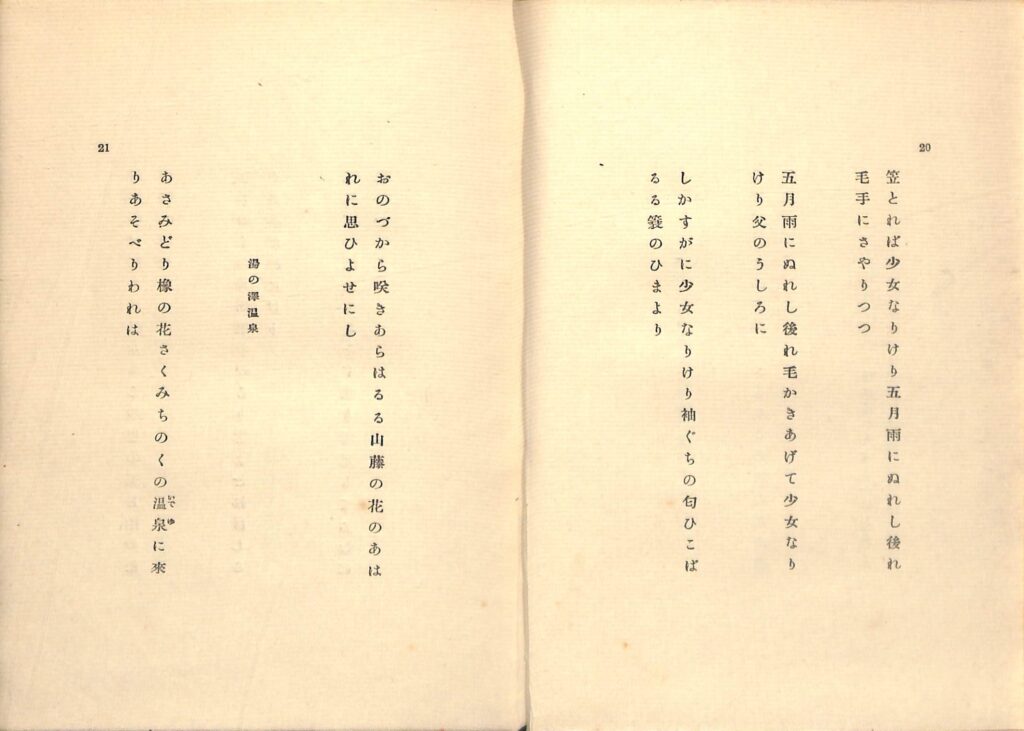 20
笠とれば少女なりけり五月雨にぬれし後れ
毛手にさやりつつ
五月雨にぬれし後れ毛かきあげて少女なり
けり父のうしろに
しかすがに少女なりけり袖ぐちの匂ひこぼ
るる簑のひまより
21
おのづから咲きあらはるる山藤の花のあは
れに思ひよせにし
湯の澤温泉
あさみどり橡の花さくみちのくの温泉に來
いでゆ
りあそべりわれは